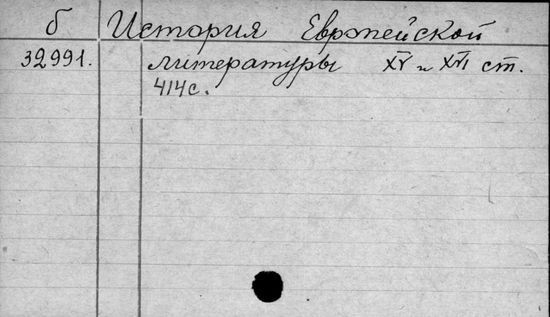 б История Европейской
32991. литературы XV и XVI ст.
414с.